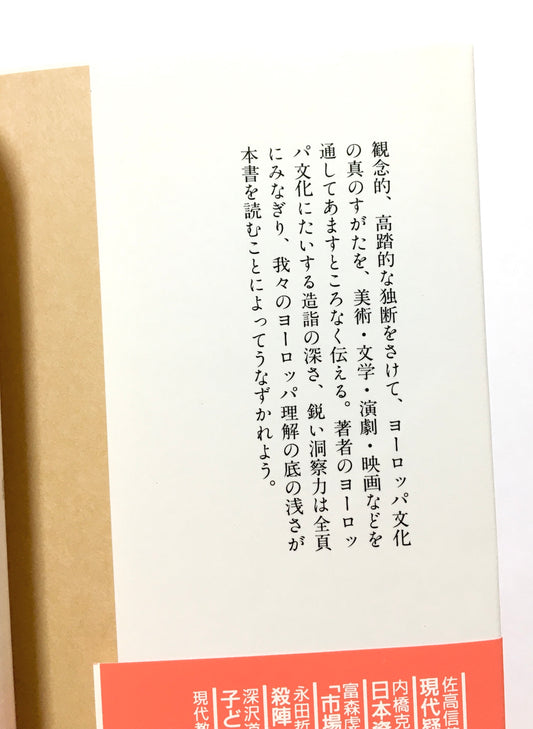 観念的、高踏的な独断をさけて、ヨーロッパ文化
の真のすがたを、美術・文学・演劇・映画などを
通してあますところなく伝える。著者のヨーロッ
パ文化にたいする造詣の深さ、鋭い洞察力は全頁
にみなぎり、我々のヨーロッパ理解の底の浅さが
本書を読むことによってうなずかれよう。
佐高信
現代疑
内橋克
日本資
富森虔
「市場
永田哲
殺陣
深沢道
子ど
現代教